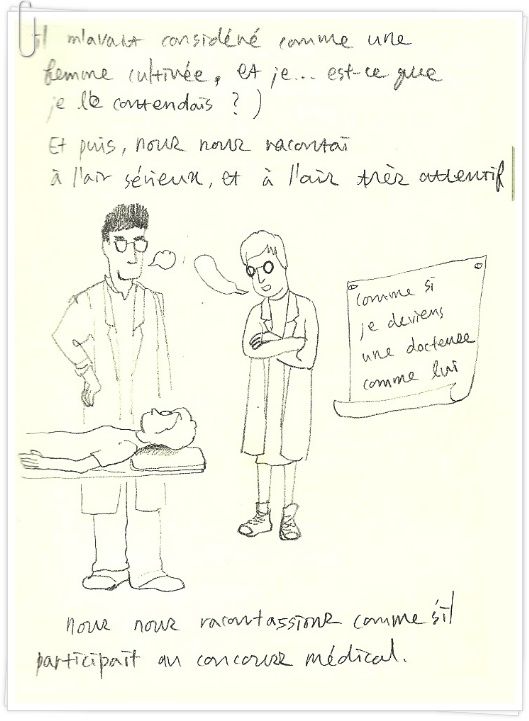 il m'avait considéré comme une
femme cultivée, et je... est-ce que
je le contendais ? )
Et puis, nous nous racontai
à l'air sérieux, et à l'air très attentif
comme si
je deviens
une docteuse
comme lui
nous nous racontassions comme s'il
participait au concours médical.